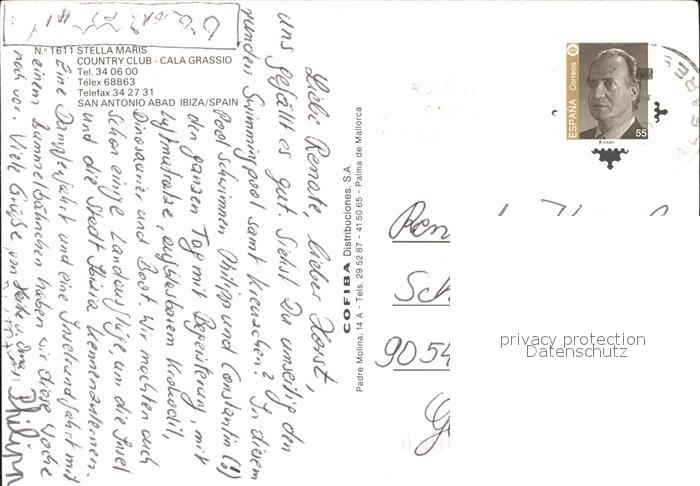 N.º 1611 STELLA MARIS
COUNTRY CLUB - CALA GRASSIO
Tel. 34 06 00
Télex 68863
Telefax 34 27 31
SAN ANTONIO ABAD IBIZA/SPAIN
Liebe Renate, lieber Horst,
uns gefällt es gut. Siehst Du umseitig den
runden Swimmingpool samt Kreuzchen? In diesem
Pool schwimmen Philipp und Constantin (!)
den ganzen Tag mit Begeisterung, mit
Luftmatratze, aufblasbarem Krokodil,
Dinosaurier und Boot. Wir machten auch
schon einige Landausflüge, um die Insel
und die Stadt Ibiza kennenzulernen.
Eine Dampferfahrt und eine Inselrundfahrt mit
einem Bummelbähnchen haben wir diese Woche
noch vor. Viele Grüße, von
Philipp
COFIBA Distribuciones, S.A.
Padre Molina, 14 A - Tels. 29 52 87 - 41 50 65 - Palma de Mallorca
ESPAÑA Correos
55
9054
privacy protection
Datenschutz